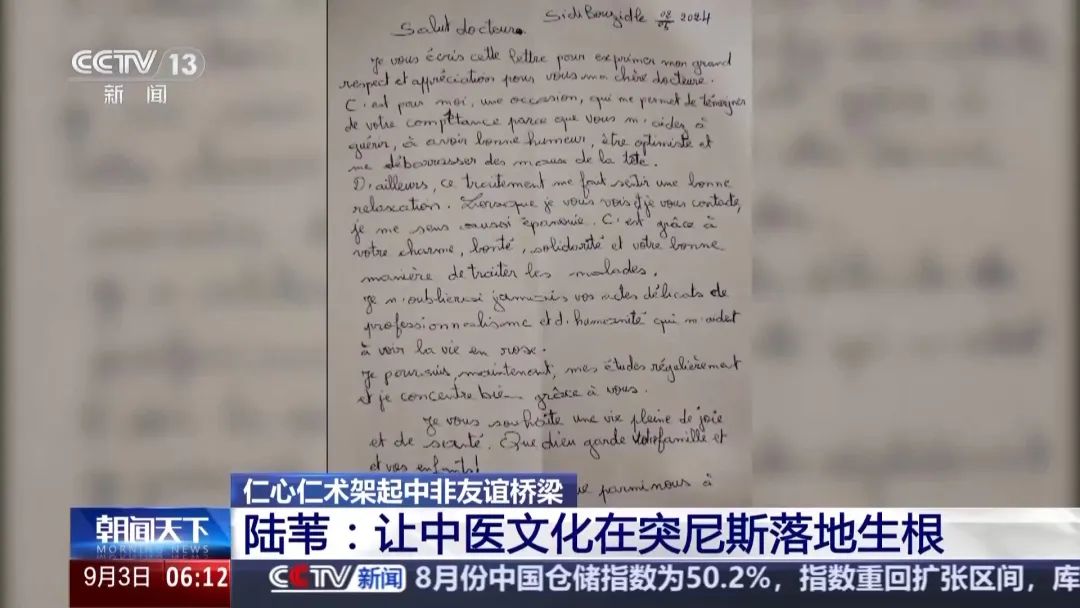 CCTV 13
新闻
Sidi Bouzid le 02/05 2024
Salut docteur.
Je vous écris cette lettre pour exprimer mon grand
respect et appréciation pour vous ma chère docteure.
C'est pour moi, une occasion, qui me permet de témoigner
de votre compttance parce que vous m'aidez à
guérir, à avoir bonne humeur, être optimiste et
me débarrasser des maux de la tête.
D'ailleurs, ce traitement me fait sentir une bonne
relaxation. Lorsque je vous vois, je vous contacte,
je me sens aussi épanouie. C'est grâce à
votre charme, bonté, solidarité et votre bonne
manière de traiter les malades.
Je n'oublierai jamais vos actes délicats de
professionnalisme et d'humanité qui m'aident
à voir la vie en rose.
Je poursuis, maintenant, mes études régulièrement
et je concentre bien grâce à vous.
Je vous souhaite une vie pleine de joie
et de santé. Que dieu garde votre famille et
et vos enfants!
parmi nous à
仁心仁术架起中非友谊桥梁
朝闻天下
MORNING NEWS
陆苇：让中医文化在突尼斯落地生根
9月3日 06:12
CCTV 新闻 8月份中国仓储指数为50.2%，指数重回扩张区间，库